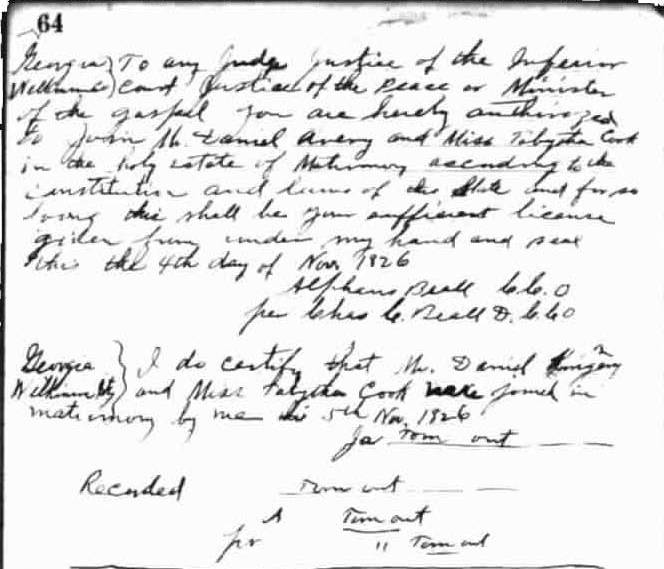 64
Georgia } To any Judge Justice of the Inferior
Wilkinson Co } Court Justice of the Peace or Minister
of the gospel you are hereby authorized
to join Mr. Daniel Avery and Miss Tabytha Cook
in the holy estate of Matrimony according to the
constitution and laws of the State and for so
doing this shall be your sufficient license
given from under my hand and seal
this the 4th day of Nov. 1826
Beall C. C. O
per Chas C. Beall D. C. C O
Georgia } I do certify that Mr. Daniel
Wilkinson Cty } and Miss Tabytha Cook were joined in
matrimony by me 5th Nov. 1826
Ja Torn out
Recorded Torn out
A Torn out
pr " Torn out